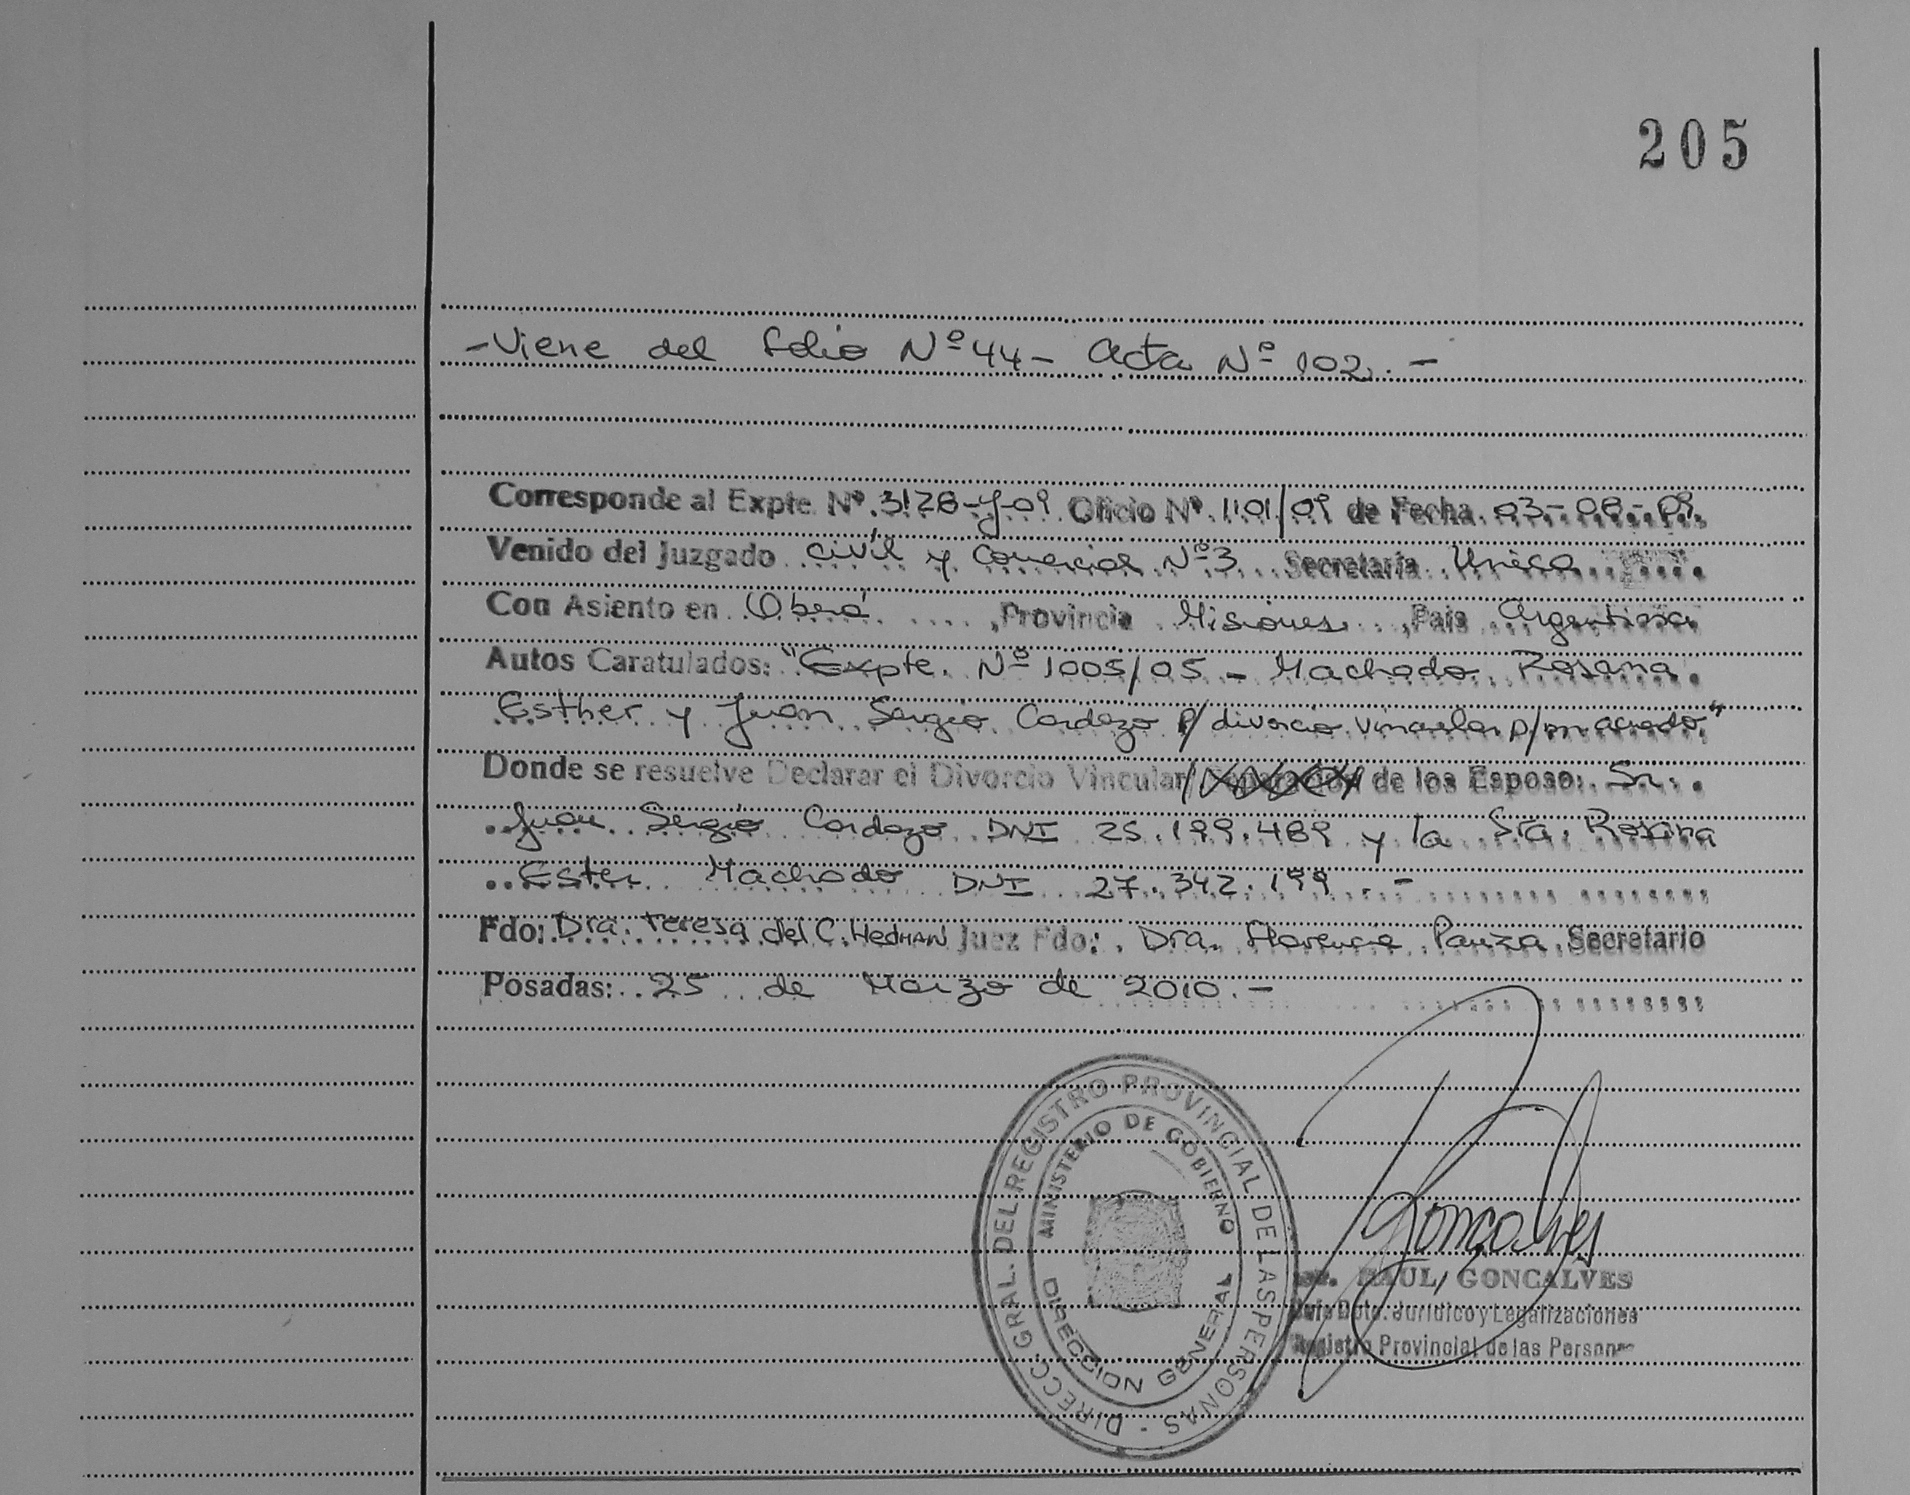 205
-Viene del folio Nº 44- Acta Nº 102.-
Corresponde al Expte Nº 3128-J-09 Oficio Nº 1101/09 de Fecha 03-08-09
Venido del Juzgado Civil y Comercial Nº 3 Secretaria Unica
Con Asiento en Oberá, Provincia Misiones, Pais Argentina
Autos Caratulados: "Expte. Nº 1005/05 - Machado Rosana
Esther y Juan Sergio Cardozo p/ divorcio vincular p/m acuerdo"
Donde se resuelve Declarar el Divorcio Vincular/ de los Esposo: Sr.
Juan Sergio Cardozo DNI 25.199.489 y la Sra. Rosana
Ester Machado DNI 27.342.199.-
Fdo: Dra. Teresa del C. Hedman Juez Fdo: Dra. Florencia Pauza Secretario
Posadas: 25 de Marzo de 2010.-
DIRECC. GRAL. DEL REGISTRO PROVINCIAL DE LAS PERSONAS -
MINISTERIO DE GOBIERNO
DIRECCION GENERAL
Goncalves
RAUL GONCALVES
Jefe Dpto. Jurídico y Legalizaciones
Registro Provincial de las Personas